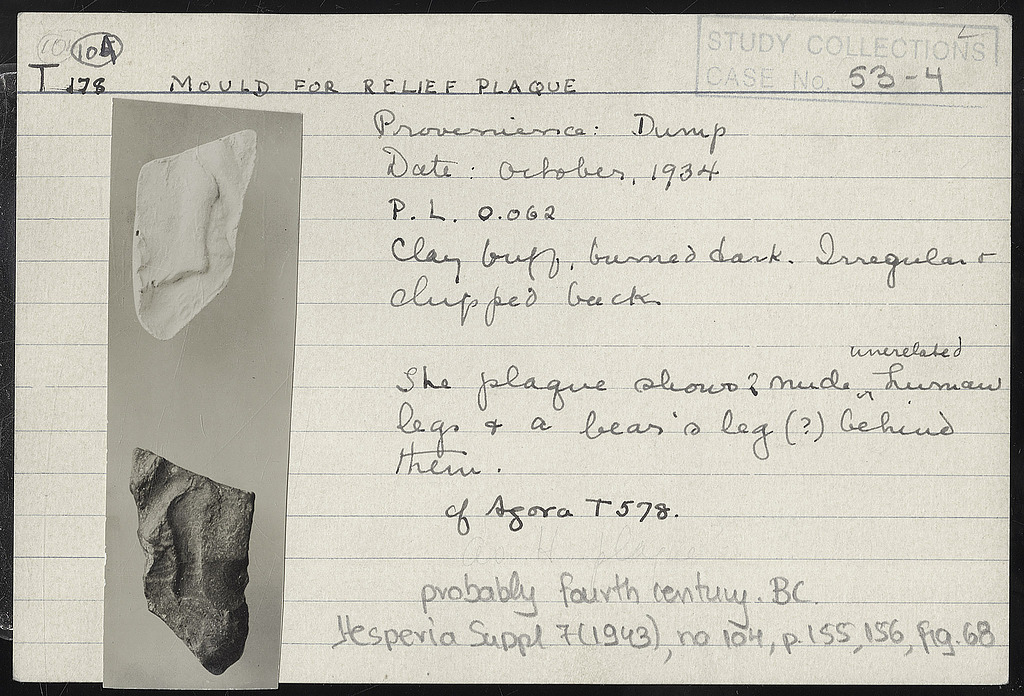 104
STUDY COLLECTIONS
CASE No. 53-4
T 178 MOULD FOR RELIEF PLAQUE
Provenience: Dump
Date: October, 1934
P. L. 0.062
Clay buff, burned dark. Irregular +
chipped back
unrelated
The plaque shows 2 nude ^ human
legs + a bear's leg (?) behind
them.
cf Agora T 578.
probably fourth century. BC.
Hesperia Suppl 7 (1943), no 104, p. 155, 156, fig. 68